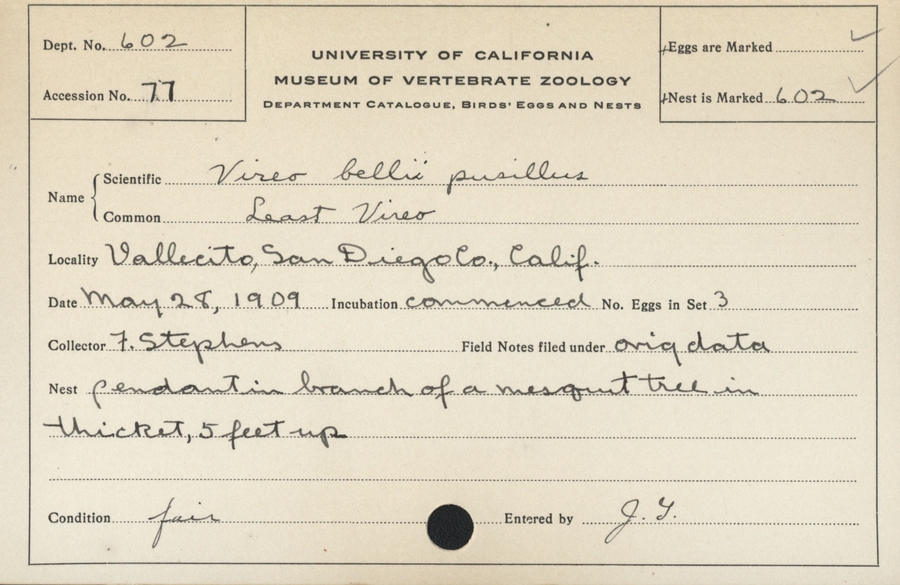 Dept. No. 602
Accession No. 77
UNIVERSITY OF CALIFORNIA
MUSEUM OF VERTEBRATE ZOOLOGY
DEPARTMENT CATALOGUE, BIRDS' EGGS AND NESTS
Eggs are Marked ✓
Nest is Marked 602 ✓
Name { Scientific Vireo bellii pusillus
Common Least Vireo
Locality Vallecito, San Diego Co., Calif.
Date May 28, 1909 Incubation commenced No. Eggs in Set 3
Collector F. Stephens Field Notes filed under orig data
Nest pendant in branch of a mesquit tree in
thicket, 5 feet up
Condition fair Entered by J. G.